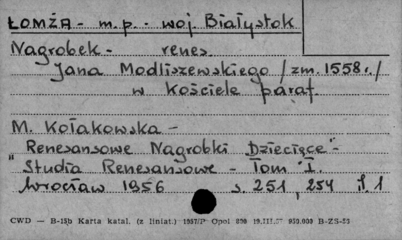 ŁOMŻA - m.p. - woj. Białystok
Nagrobek - renes.
Jana Modliszewskiego /zm. 1558 r./
w kościele paraf.
M. Kołakowska -
"Renesansowe Nagrobki Dziecięce" -
Studia Renesansowe - Tom I.
Wrocław 1956 s. 251, 254 il. 1
CWD — B-15b Karta katal. (z liniat.) 1957/P Opol